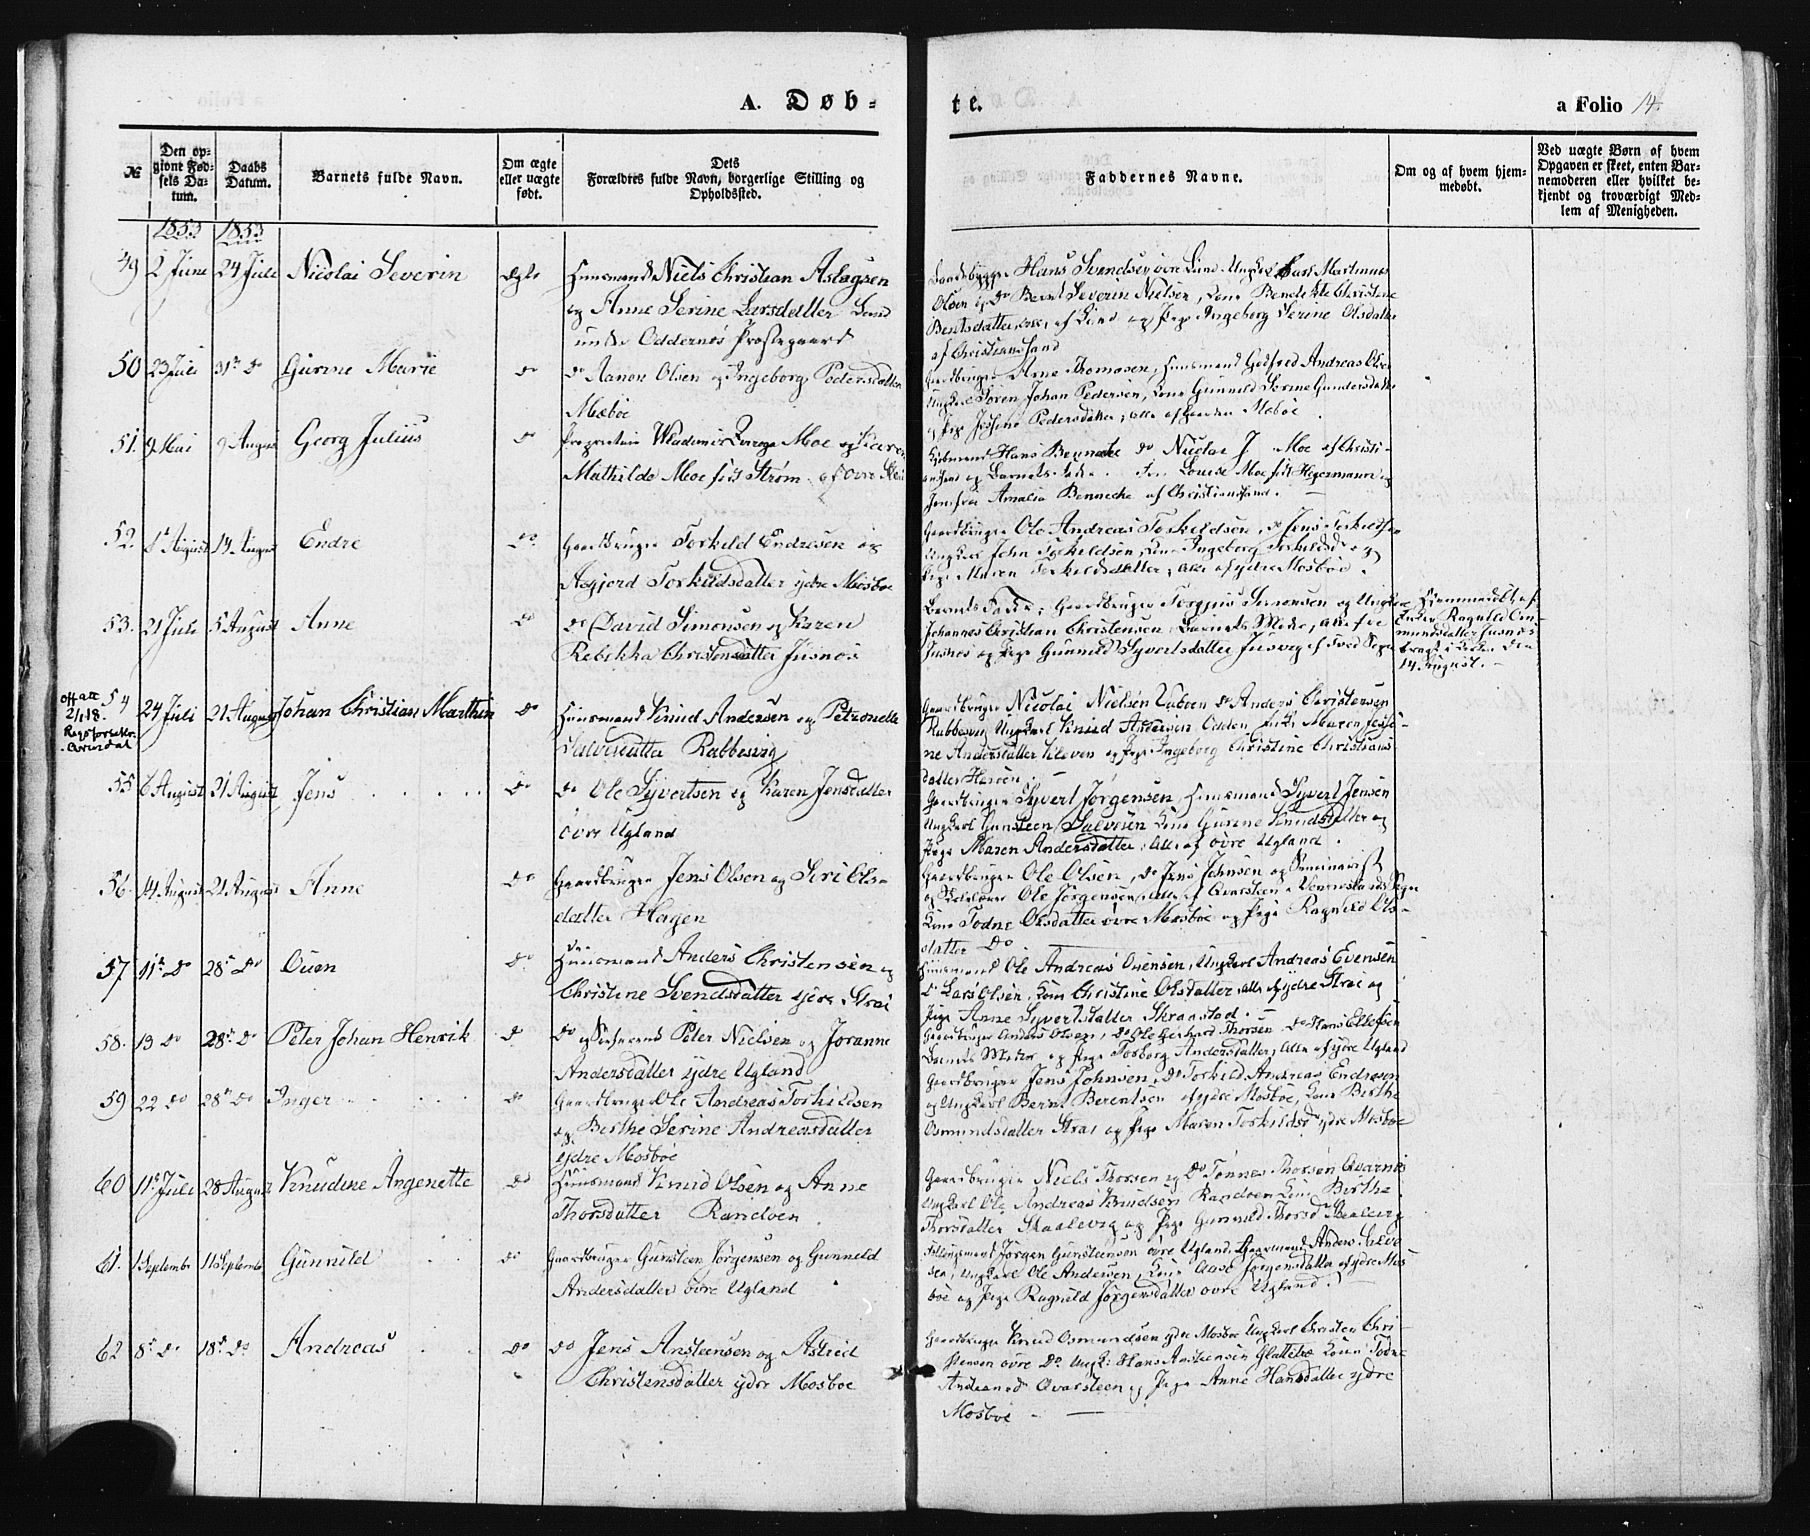 A. Døb-
te.
a Folio 14.
№
Den op-
givne Fød-
sels Da-
tum.
Daabs
Datum.
Barnets fulde Navn.
Om ægte
eller uægte
født.
Dets
Forældres fulde Navn, borgerlige Stilling og
Opholdssted.
Faddernes Navne.
Om og af hvem hjem-
medøbt.
Ved uægte Børn af hvem
Opgaven er skeet, enten Bar-
nemoderen eller hvilket be-
kjendt og troværdigt Med-
lem af Menigheden.
1853 1853
49 2 Juni 24 Juli Nicolai Severin ægte Huusmand Niels Christian Aslagsen
og Anne Serine Larsdatter Lund
under Oddernes Præstegaard
Hans Svendsen øvre Lund Ungkarl Carl Martinus
Olsen og Do Bernt Severin Nielsen, Kone Bendikte Christine
Bentsdatter, alle af Lund og Pige Ingeborg Serine Olsdatter
af Christiansand
50 23 Juli 31te Do Gurine Marie do Do Aanon Olsen og Ingeborg Pedersdatter
Mæbøe
Gaardbruger Arne Thomasen, Huusmand Godfred Andreas Olsen
Ungkarl Søren Johan Pedersen, Kone Gunnild Serine Gundersdatter
og Pige Josefine Pedersdatter, alle af Gaarden Mæbøe.
51. 9 Mai 9 August Georg Julius do Proprietær Wladimir Moe og Karen
Mathilde Moe født Strøm af øvre
Kjøbmand Hans Bennecke do Nicolai J. Moe af Christi-
ansand og Barnets Fader. Louise Moe født Hegermann og
Jomfru Amalia Bennecke af Christiansand.
52. 1ste August 14 August Endre Do Gaardbruger Torkild Endresen og
Asgjerd Torkildsdatter ydre Mosbøe
Gaardbruger Ole Andreas Torkildsen, do Jens Torkildsen
Ungkarl John Torkildsen, Kone Ingeborg Torkildsd og
Pige Maren Torkildsdatter, alle af ydre Mosbøe.
53. 21 Juli 5 August Anne Do Do David Simonsen og Karen
Rebekka Christensdatter Jusnes
Barnets Fader, Gaardbruger Torgjus Simonsen og Ungkarl
Johannes Christian Christensen, Barnets Moder, alle fra
Jusnes og Pige Gunnild Syvertsdatter Jusvig af Sogn
Hjemmedøbt af
Enken Ragnild Om-
mundsdatter Jusnes
bragt i Kirken den
14 August.
54 24 Juli 21 August Johan Christian Marthin do Huusmand Knud Andersen og Petronelle
Salvesdatter Rabbesvig
Off att
2/1 18.
Gaardbruger Nicolai Nielsen do Anders Christensen
Rabbesvig, Ungkarl Knud Andersen Odden, Maren Jose-
ne Andersdatter Kleven og Pige Ingeborg Christine Christians-
datter
55 6 August 21 August Jens Do Do Ole Syvertsen og Karen Jensdatter
øvre Ugland
Gaardbruger Syvert Jørgensen, Huusmand Syvert Jensen
Ungkarl Gunsteen Salvesen Kone Gurine Knudsdatter og
Pige Maren Andersdatter, alle af øvre Ugland.
56. 14 August 21 August Anne Do Gaardbruger Jens Olsen og Siri Ols-
datter Hagen
Gaardbruger Ole Olsen, Do Jens Johnsen og Seminarist
og Skolelærer Ole Jørgensen, alle af Qvarsteen i Vennesland Sogn
Kone Todne Olsdatter øvre Mosbøe og Pige Ragnild Ols-
datter Do
57 11te Do 28de Do Ouen Do Huusmand Anders Christensen og
Christine Svendsdatter ydre Strai
Huusmand Ole Andreas Ouensen, Ungkarl Andreas Evensen
Do Lars Olsen, Kone Christine Olsdatter, alle af ydre Strai og
Pige Anne Syvertsdatter Skraastad.
58. 13 Do 28de Do Peter Johan Henrik Do Do og Peter Nielsen og Joranne
Andersdatter ydre Ugland
Gaardbruger Anders Olsen, Do Ole Gerhard Thorsen, Do Hans Ellefsen
Barnets Moder og Pige Torborg Andersdatter, alle af ydre Ugland
59 22 Do 28de Do Inger do Gaardbruger Ole Andreas Torkildsen
og Birthe Serine Andreasdatter
ydre Mosbøe
Gaardbruger Jens Johnsen, Do Torkild Andreas Endresen
og Ungkarl Bernt Berentsen af ydre Mosbøe, Kone Birthe
Osmundsdatter Strai og Pige Maren Torkildsd ydre Mosbøe
60 11te Juli 28 August Knudine Angenette Do Huusmand Knud Olsen og Anne
Thorsdatter Randøen
Gaardbruger Niels Thorsen og Do Tønnes Thorsen Qvarnes
Ungkarl Ole Andreas Knudsen Randøen Kone Birthe
Thorsdatter Skaalevig og Pige Gunnild Thorsd Skaalevig
61. 1 September 11 September Gunnild do Gaardbruger Gunsteen Jørgensen og Gunnild
Andersdatter øvre Ugland
Jørgen Gunsteensen øvre Ugland, Anders Salve-
sen, Ungkarl Ole Andersen, Kone Aase Jørgensdatter af ydre Mos-
bøe og Pige Ragnild Jørgensdatter øvre Ugland.
62 8de Do 18de Do Andreas Do Do Jens Ansteensen og Astrid
Christensdatter ydre Mosbøe
Gaardbruger Knud Osmundsen ydre Mosbøe Ungkarl Christen Chri-
stensen øvre Do. Ungk: Hans Ansteensen Glattetre Kone Todne
Qvarsteen og Pige Anne Hansdatter ydre
Mosbøe